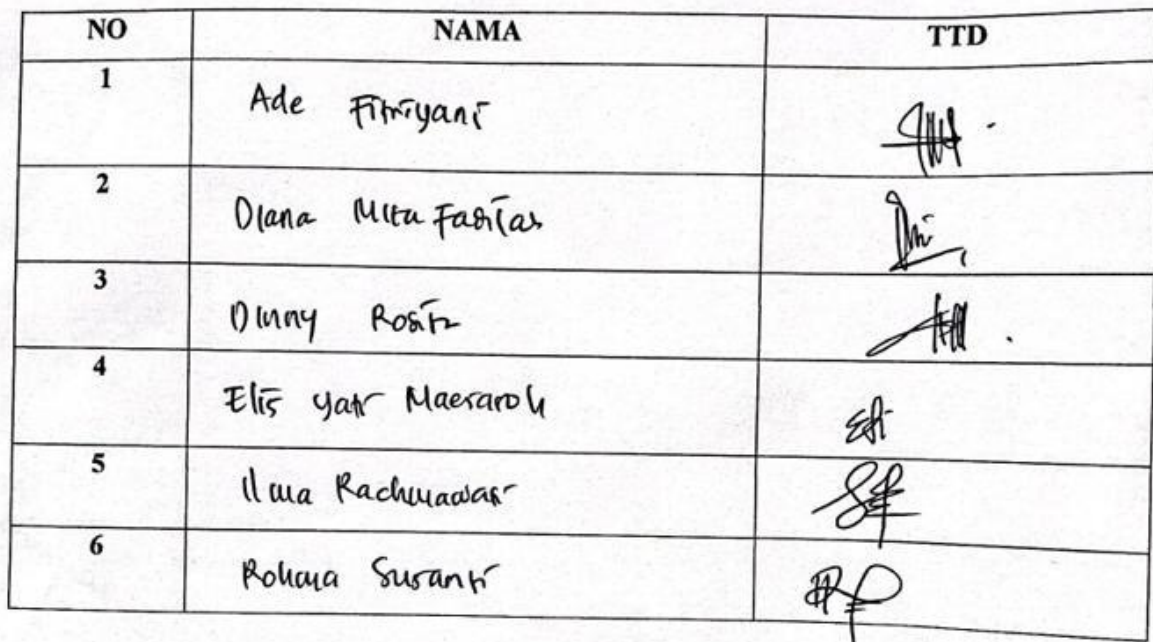 NO NAMA TTD
1 Ade Fitriyani
2 Diana Mita
3 Dinny Rosita
4 Elis Yati Maesaroh
5 Ilma Rachmawati
6 Rohana Susanti